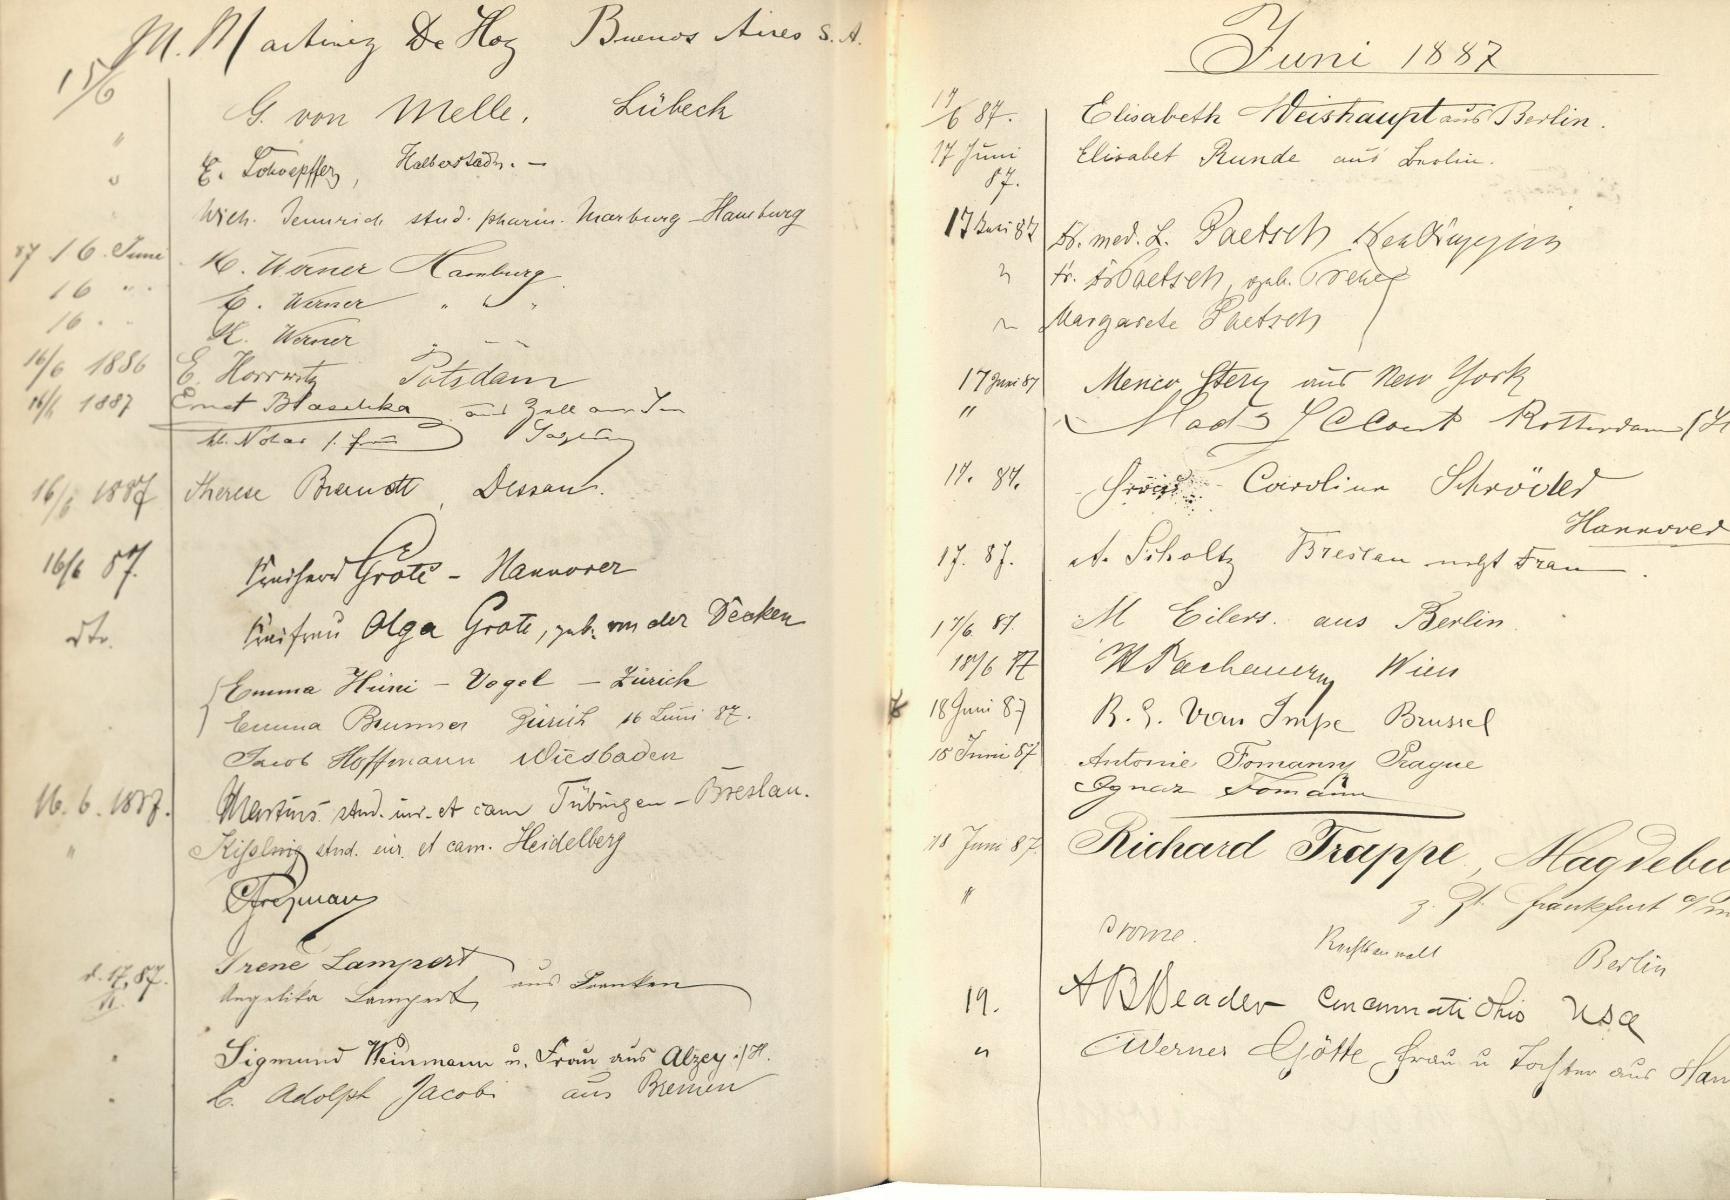 M. Martinez De Hoz Buenos Aires S. A.
15/6 G. von Melle. Lübeck
" E. Halberstadt. —
" stud. pharm. Marburg - Hamburg
87 16. Juni K. Werner Hamburg
16 " " E. Werner " " "
16 " " K. Werner " " "
16/6 1886 E. Horrwitz Potsdam
16/6 1887 Ernst Blaschka aus Zell am
16/6 1887 Therese Brandt, Dessau.
16/6 87. Freiherr Grote - Hannover
dto. Freifrau Olga Grote, geb. von der Decken
Emma Hüni - Vogel - Zürich
Emma Brunner Zürich 16 Juni 87.
Jacob Hoffmann Wiesbaden
16. 6. 1887. Martius stud. iur. et cam Tübingen - Breslau.
" stud. iur. et cam. Heidelberg
d. 17, 87. Irene Lampert
Angelika Lampert aus Franken
" Sigmund Weinmann u. Frau aus Alzey ./H.
" C. Adolph Jacobi aus Bremen
Juni 1887
17/6 87. Elisabeth Weishaupt aus Berlin.
17 Juni 87. Elisabet Runde aus Berlin.
17 Juni 87 Dr. med. L. Paetsch
" Fr. Dr Paetsch, geb.
" Margarete Paetsch
17 Juni 87 Stern aus New York
" Rotterdam
17. 87. Frau Caroline Schröder
Hannover
17. 87. A. Scholtz Breslau nebst Frau.
17/6 87. M Eilers. aus Berlin.
18/6 87 W Pachauery Wien
18 Juni 87 R. E. Van Impe Brussel
18 Juni 87 Antonie Prague
Ignaz
18 Juni 87. Richard Trappe, Magdebu
" z. Zt. Frankfurt a/m
Rechtsanwalt Berlin
19. Cincinnati Ohio USA
" Werner Götte Frau u Tochter aus Han